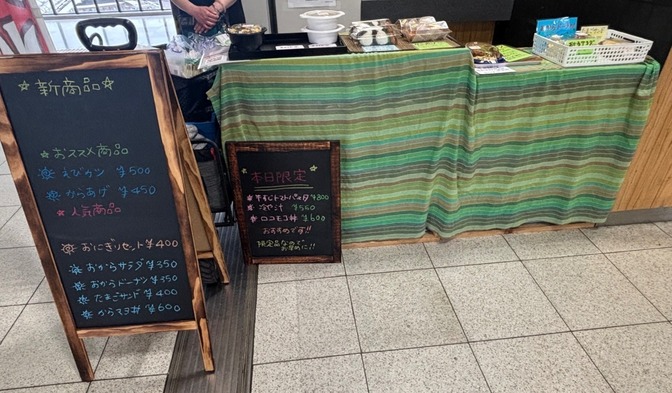 ☆新商品☆
☆おススメ商品
えびカツ ¥500
からあげ ¥450
☆人気商品
おにぎりセット ¥400
おからサラダ ¥350
おからドーナツ ¥350
たまごサンド ¥400
からマヨ丼 ¥600
本日限定
冷や汁 ¥550
ロコモコ丼 ¥600
おすすめです!!
限定品なので
お早めに!!